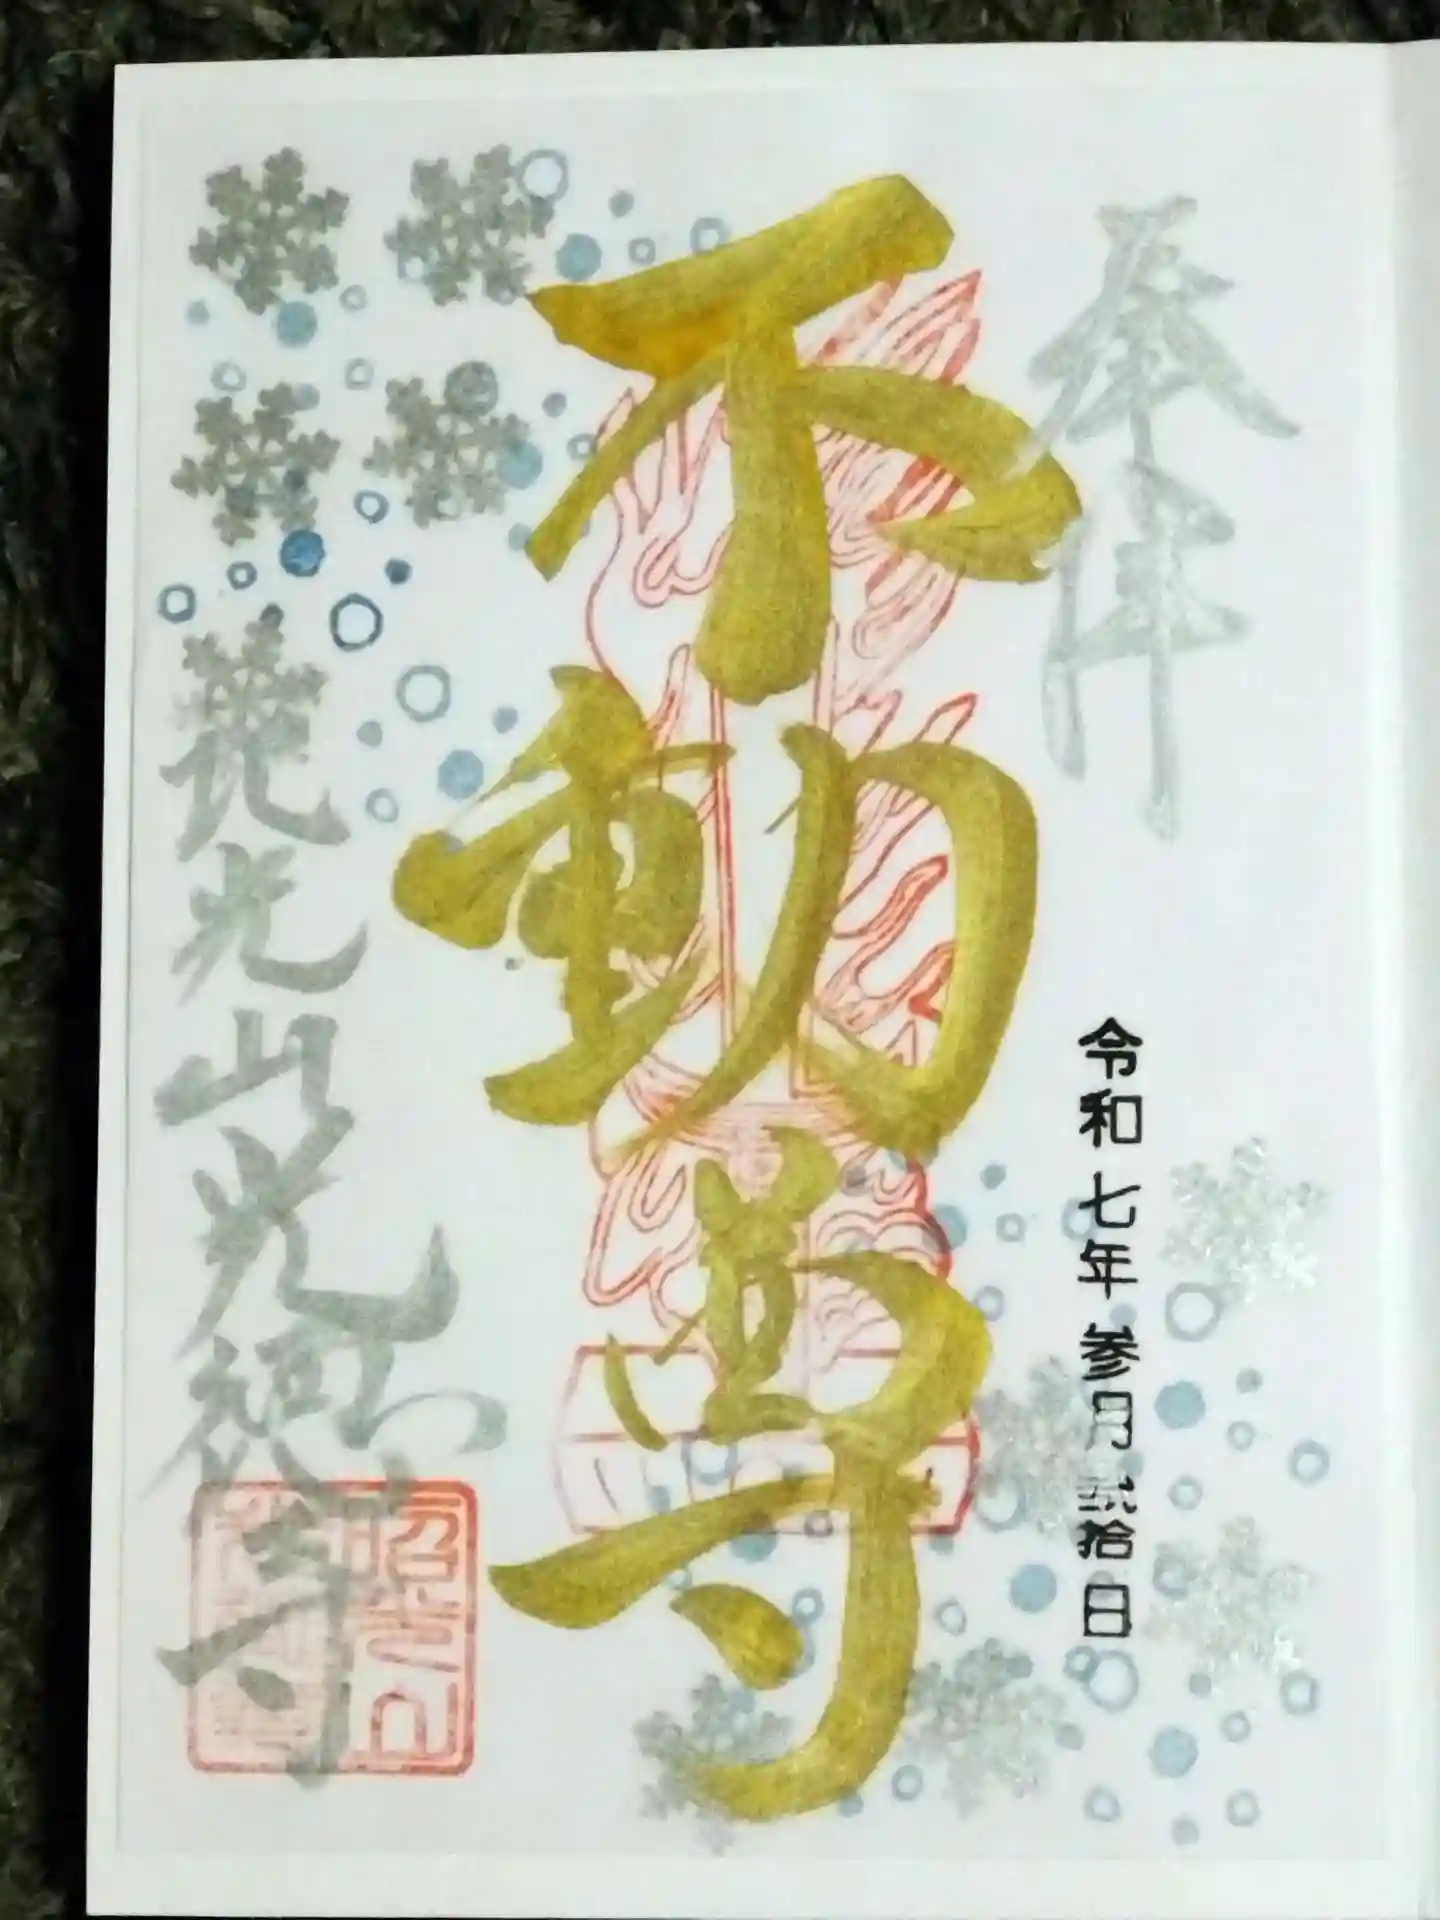 奉拝
令和七年参月弐拾日
不動尊
光山光 寺